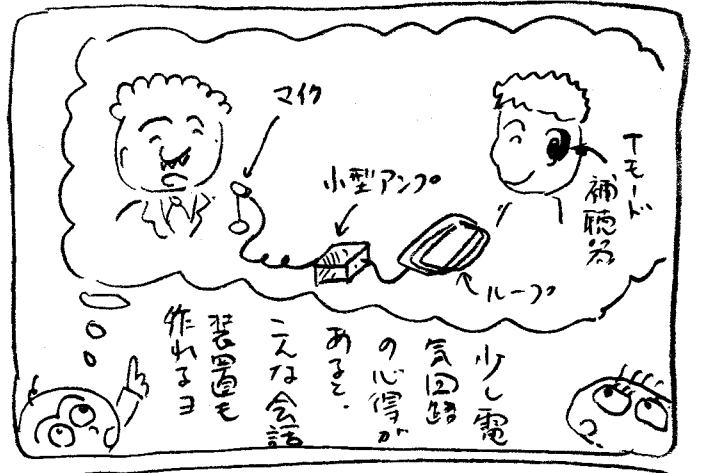 マイク
小型アンプ
Tモード
補聴器
ループ
少し電
気回路
の心得が
あると、
こんな会話
装置も
作れるヨ